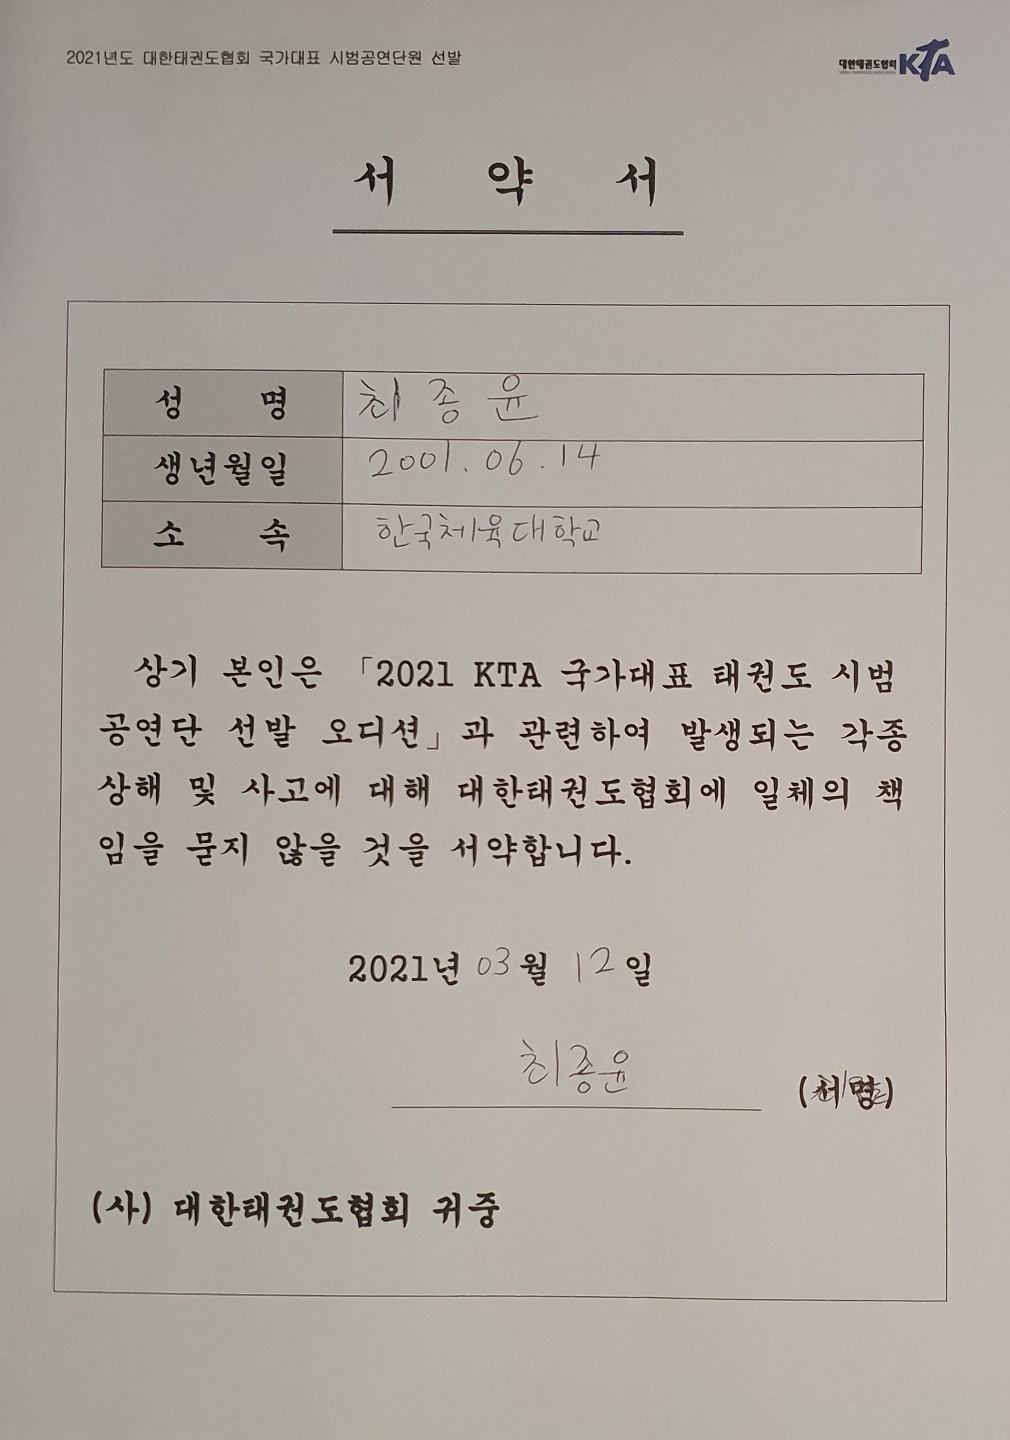 2021년도 대한태권도협회 국가대표 시범공연단원 선발
대한태권도협회 KTA
서 약 서
성 명 최종윤
생년월일 2001.06.14
소 속 한국체육대학교
상기 본인은 「2021 KTA 국가대표 태권도 시범
공연단 선발 오디션」과 관련하여 발생되는 각종
상해 및 사고에 대해 대한태권도협회에 일체의 책
임을 묻지 않을 것을 서약합니다.
2021년 03월 12일
최종윤 (서명)
(사) 대한태권도협회 귀중